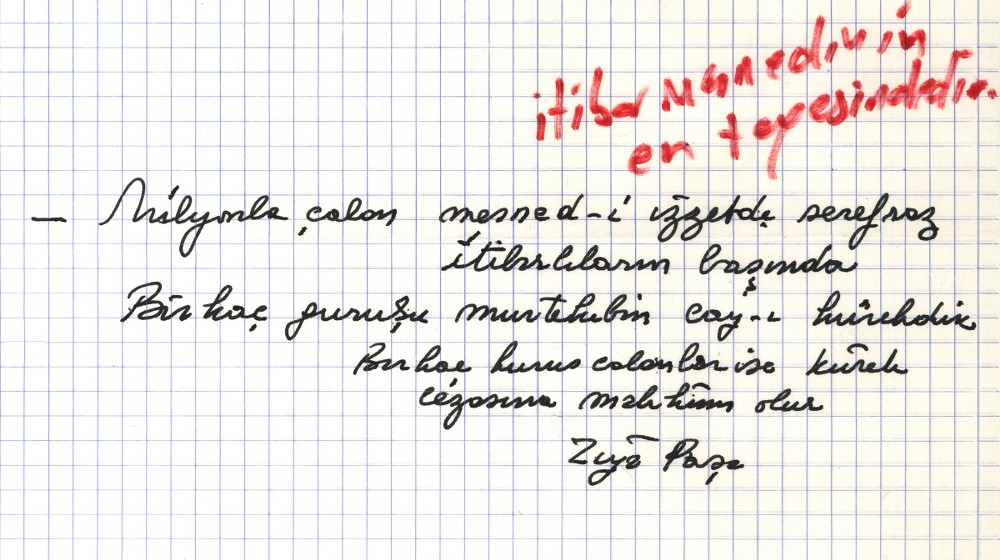 itibar mesnedinin
en tepesindedir.
— Milyonla çalan mesned-i izzetde serefraz
itibarlıların başında
Birkaç guruşu murtekibin cay-ı kürekdir
Birkaç kurus calanlar ise kürek
cézasına mahkûm olur
Ziyâ Paşa